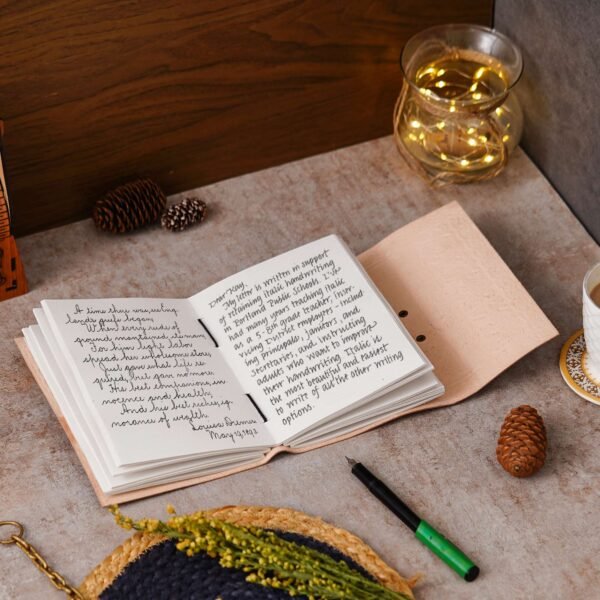 A time there was, ere Eng-
lands griefs began,
When every rode of
ground maintained its man,
For him light labor
spread her wholesome store,
Just gave what life re-
quired, but gave no more
His best companions, in-
nocence and health,
And his best riches, ig-
norance of wealth.
May
Dear Kay,
My letter is written in support
of retaining italic handwriting
in Portland Public Schools. I've
had many years teaching italic
as a 5-8th grade teacher, instr-
ucting District employers, includ
ing principals, janitors, and
secretaries, and instructing
adults who want to improve
their handwriting. Italic is
the most beautiful and easiest
to write of all the other writing
options.